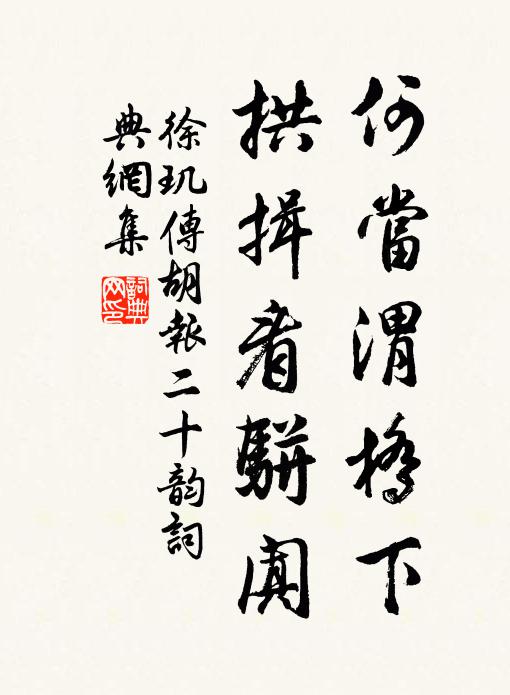 何當渭橋下
拱揖看駢闐
徐玑傳胡報二十韵詞
典網集
詞典
网印